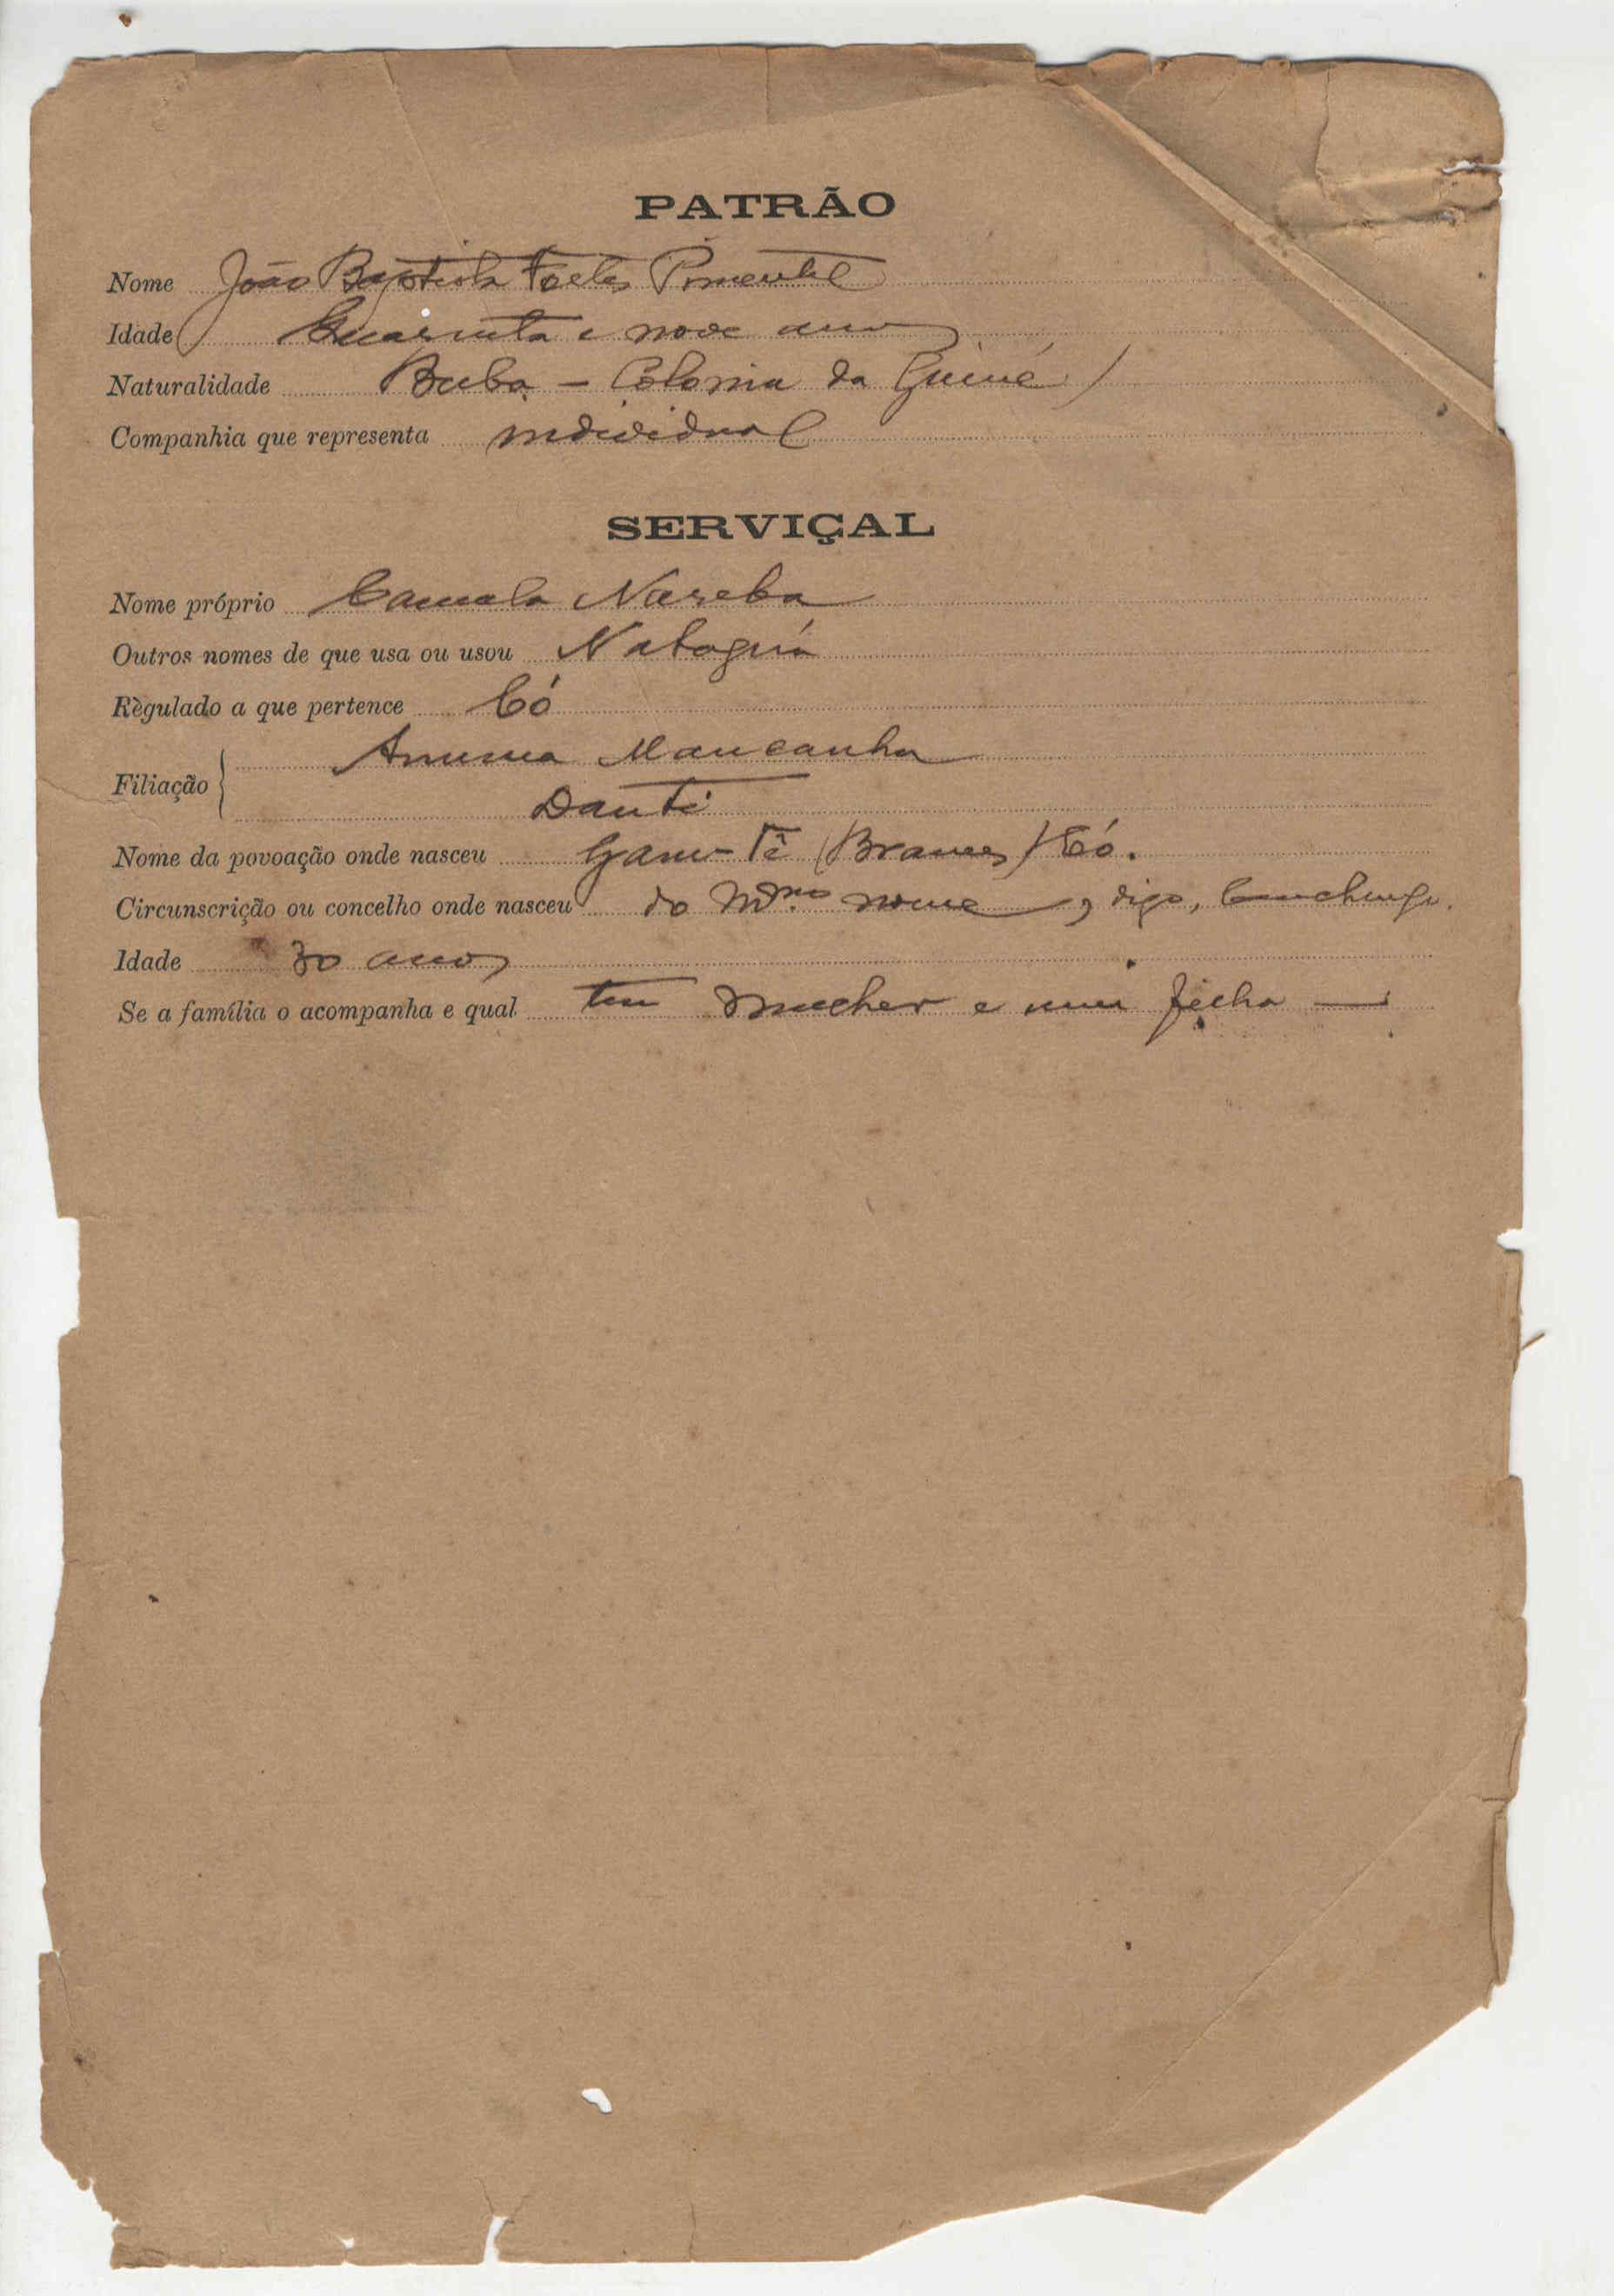 PATRÃO
Nome João Baptista Pimentel
Idade Quarenta e nove anos
Naturalidade Buba - Colonia da Guiné
Companhia que representa individual
SERVIÇAL
Nome próprio Camala
Outros nomes de que usa ou usou
Règulado a que pertence Có
Filiação Mancanha
Danti
Nome da povoação onde nasceu (Brames) Có.
Circunscrição ou concelho onde nasceu do Mmo nome, digo,
Idade 30 anos
Se a família o acompanha e qual tem mulher e um filho —